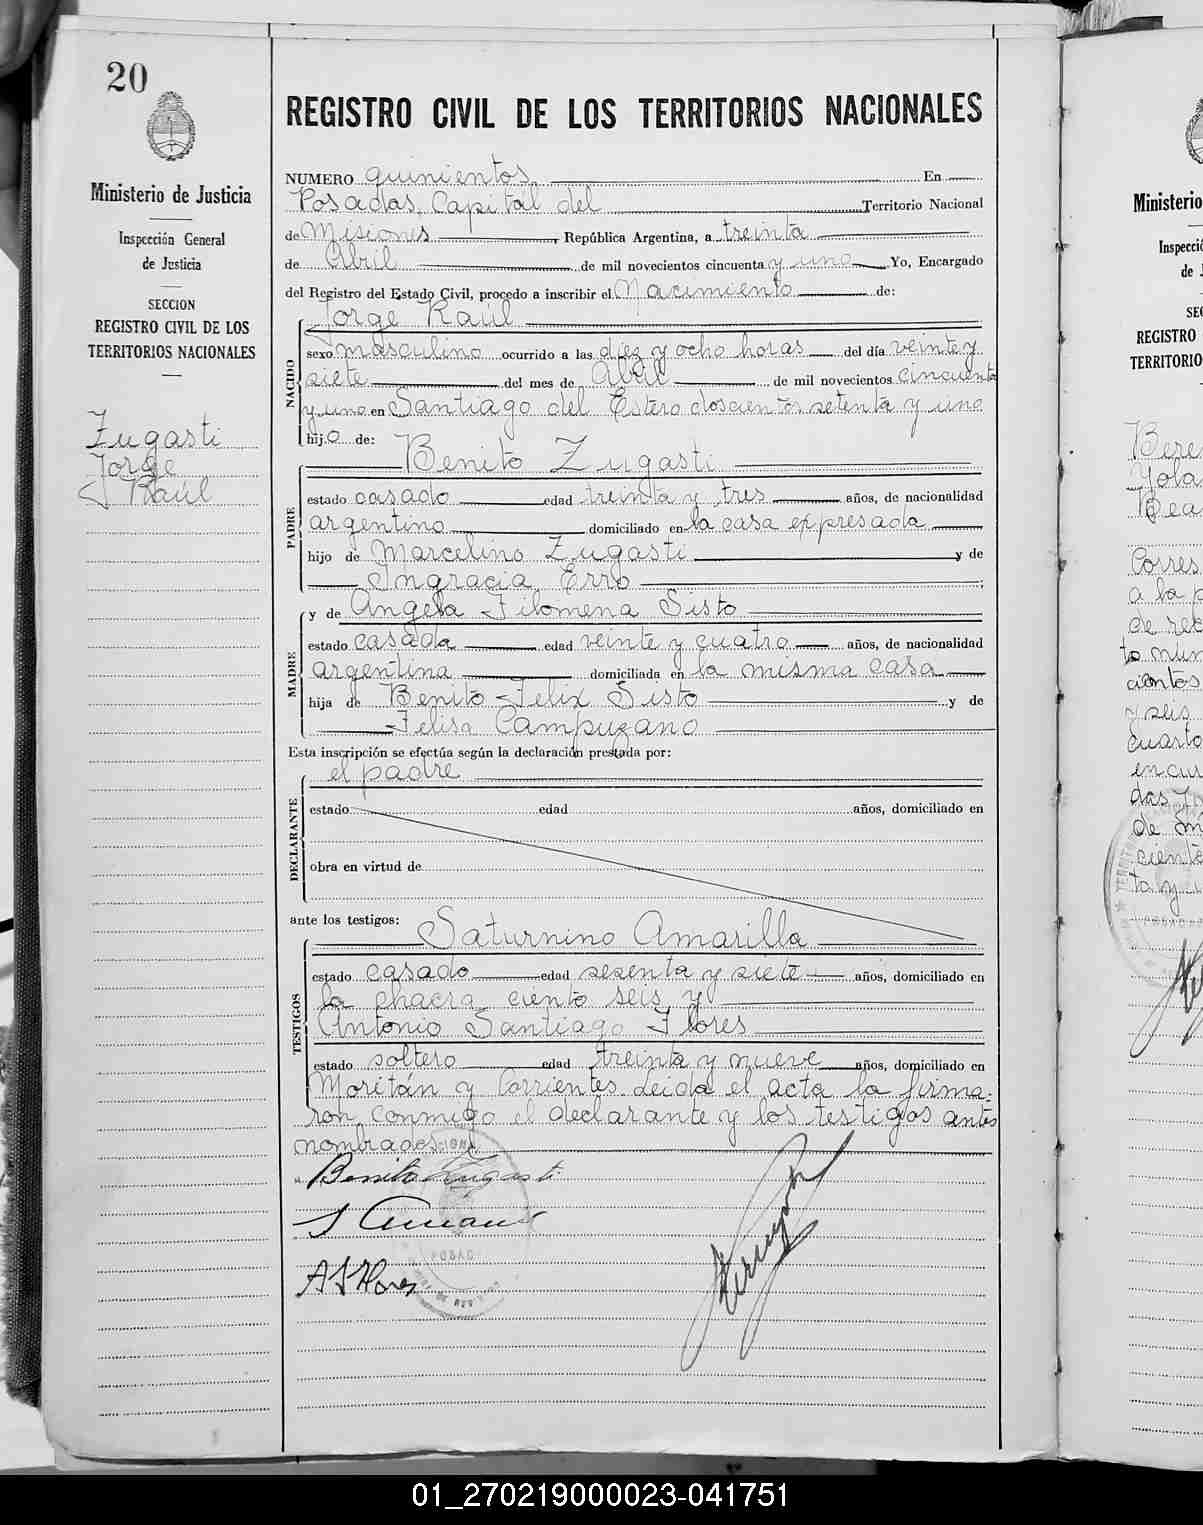 20
Ministerio de Justicia
Inspección General
de Justicia
SECCION
REGISTRO CIVIL DE LOS
TERRITORIOS NACIONALES
Zugasti
Jorge
Raúl
REGISTRO CIVIL DE LOS TERRITORIOS NACIONALES
NUMERO quinientos En
Posadas, Capital del Territorio Nacional
de Misiones, República Argentina, a treinta
de Abril de mil novecientos cincuenta y uno Yo, Encargado
del Registro del Estado Civil, procedo a inscribir el Nacimiento de:
Jorge Raúl
NACIDO
sexo masculino ocurrido a las diez y ocho horas del día veinte y
siete del mes de Abril de mil novecientos cincuenta
y uno en Santiago del Estero doscientos setenta y uno
hijo de:
Benito Zugasti
PADRE
estado casado edad treinta y tres años, de nacionalidad
argentino domiciliado en la casa expresada
hijo de Marcelino Zugasti y de
Ingracia Erro
y de Angela Filomena Sisto
MADRE
estado casada edad veinte y cuatro años, de nacionalidad
argentina domiciliada en la misma casa
hija de Benito Felix Sisto y de
Felisa Campuzano
Esta inscripción se efectúa según la declaración prestada por:
el padre
DECLARANTE
estado edad años, domiciliado en
obra en virtud de
ante los testigos:
Saturnino Amarilla
TESTIGOS
estado casado edad sesenta y siete años, domiciliado en
la chacra ciento seis y
Antonio Santiago Flores
estado soltero edad treinta y nueve años, domiciliado en
Moritán y Corrientes. Leida el acta la firma-
ron conmigo el declarante y los testigos antes
nombrados.
Benito Zugasti
A S Flores
POSAD
Ministerio
Inspecció
de J
SEC
REGISTRO
TERRITORIO
Yola
Corres
a la p
de rec
to num
cientos
y seis
cuarto
en cur
das
de
ciente
ta y
01_270219000023-041751